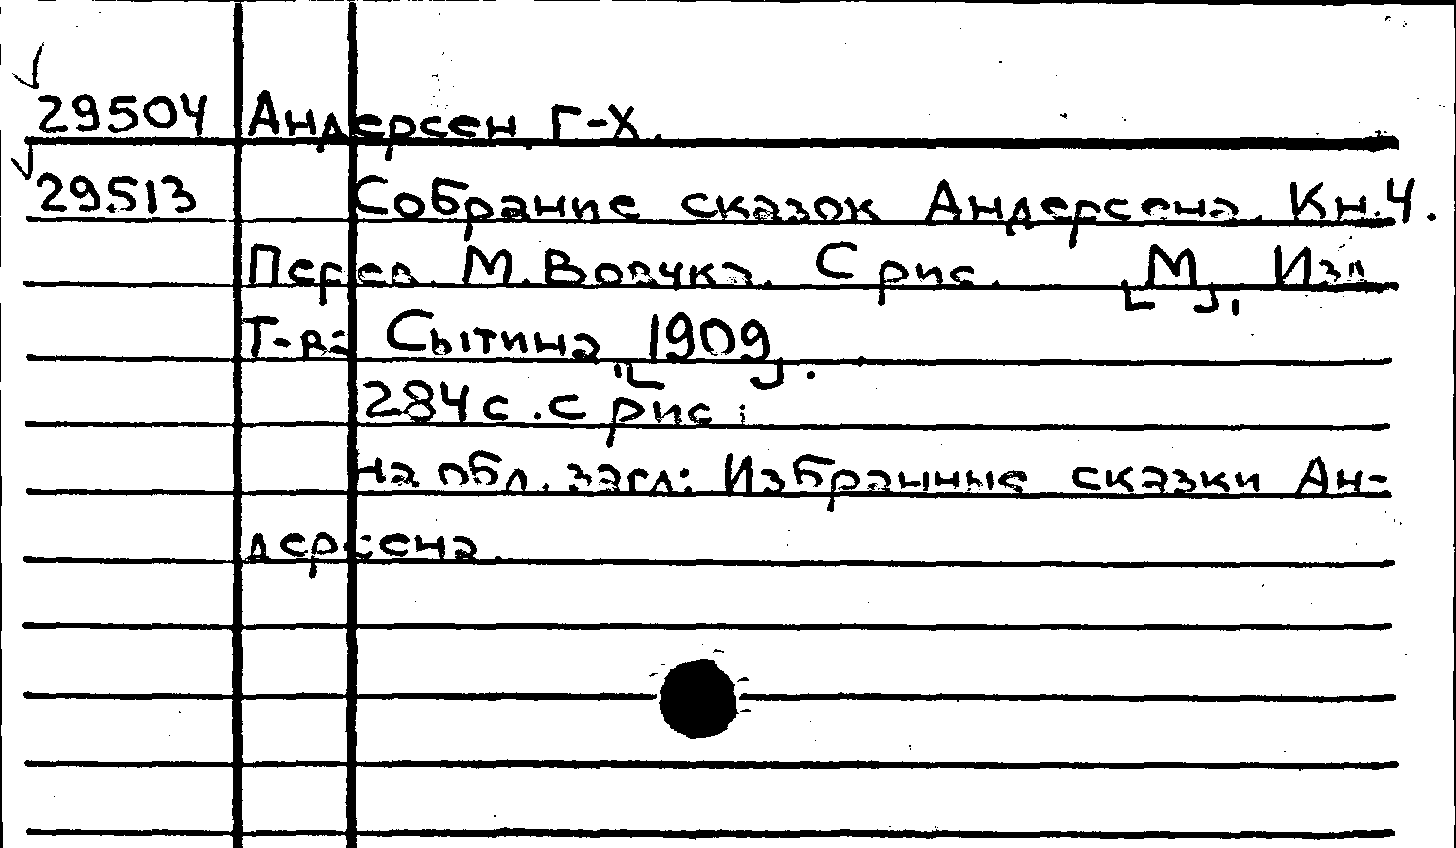 29504 Андерсен Г-Х.
29513 Собрание сказок Андерсена. Кн.4.
Перев. М.Вовчка. С рис. [М], Изд
Т-ва Сытина, [1909].
284 с. с рис.
На обл. загл: Избранные сказки Ан-
дерсена.